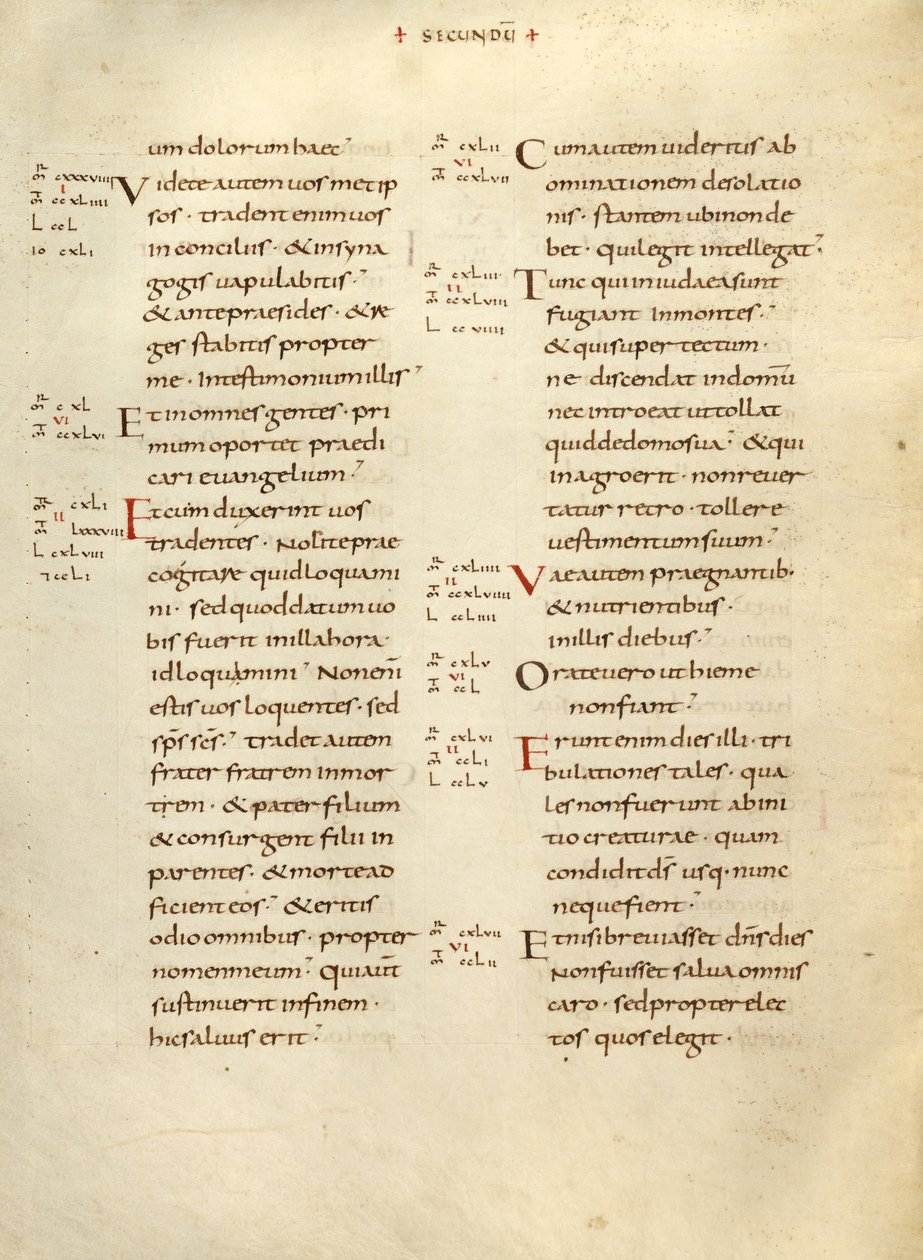 + SECUNDŪ +
um dolorum haec
m̄r cxxxviiii
i
m̄t ccxLiiii
L ccL
io cxLi
Videte autem uos met ip
sos · tradent enim uos
in conciliis · & in syna
gogis uapulabitis ·
& ante praesides · & re
ges stabitis propter
me · In testimonium illis
m̄r cxL
vi
m̄t ccxLvi
Et in omnes gentes · pri
mum oportet praedi
cari evangelium
m̄r cxLi
ii
m̄t Lxxxviii
L cxLviii
⁊ ccLi
Et cum duxerint uos
tradentes · Nolite prae
cogitare quid loquami
ni · sed quod datum uo
bis fuerit in illa hora ·
id loquimini Non eni̅
estis uos loquentes · sed
sp̅s sc̅s · tradet autem
frater fratrem in mor
tem · & pater filium
& consurgent filii in
parentes · & morte ad
ficient eos · & eritis
odio omnibus · propter
nomen meum qui aut̅
sustinuerit in finem ·
hic saluus erit ·
m̄r cxLii
vi
m̄t ccxLvii
Cum autem uideritis ab
ominationem desolatio
nis · stantem ubi non de
bet · qui legit intellegat ·
m̄r cxLiii
ii
m̄t ccxLviii
L ccviiii
Tunc qui in iudaea sunt
fugiant In montes ·
& qui super tectum ·
ne discendat in domu̅
nec introeat ut tollat
quid de domo sua & qui
in agro erit · non rever
tatur retro · tollere
uestimentum suum
m̄r cxLiiii
ii
m̄t ccxLviiii
L ccLiiii
Vae autem praegnantib·
& nutrientibus ·
in illis diebus ·
m̄r cxLv
vi
m̄t ccL
Orate uero ut hieme
non fiant
m̄r cxLvi
ii
m̄t ccLi
L ccLv
Erunt enim dies illi · tri
bulationes tales · qua
les non fuerunt ab ini
tio creaturae · quam
condidit d̅s usq· nunc
neque fient ·
m̄r cxLvii
vi
m̄t ccLii
Et nisi breviasset dn̅s dies
Non fuisset salua omnis
caro · sed propter elec
tos quos elegit ·